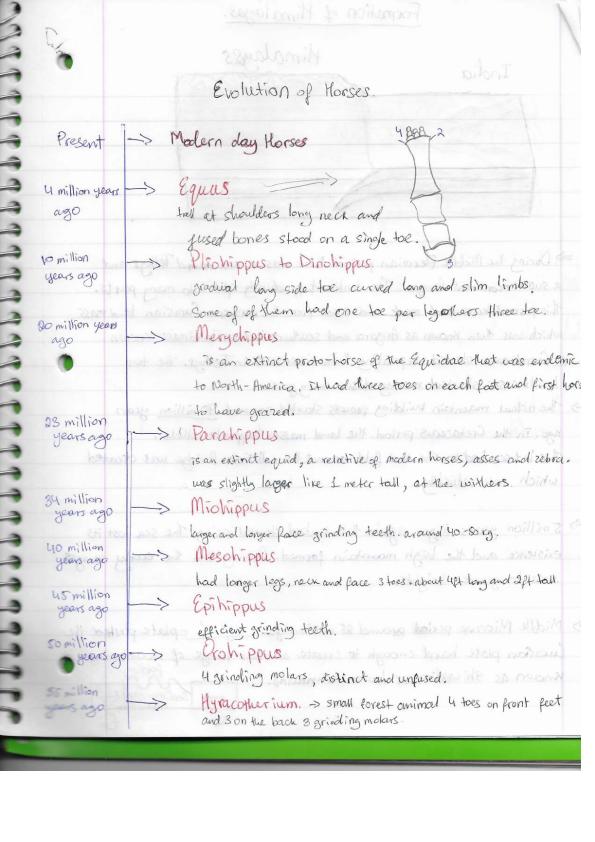 Evolution of Horses.
Present → Modern day Horses
4 2
4 million years ago → Equus
tall at shoulders long neck and
fused bones stood on a single toe.
3
10 million years ago → Pliohippus to Dinohippus
gradual long side toe curved long and slim limbs.
Some of of them had one toe per leg others three toe.
20 million years ago → Merychippus
is an extinct proto-horse of the Equidae that was endemic
to North-America. it had three toes on each foot and first
to have grazed.
23 million years ago → Parahippus
is an extinct equid, a relative of modern horses, asses and zebra.
was slightly larger like 1 meter tall, at the withers.
34 million years ago → Miohippus
larger and longer face grinding teeth. around 40-50 kg.
40 million years ago → Mesohippus
had longer legs, neck and face 3 toes. about 4ft long and 2ft tall.
45 million years ago → Epihippus
efficient grinding teeth.
50 million years ago → Orohippus
4 grinding molars, distinct and unfused.
55 million years ago → Hyracotherium. → small forest animal 4 toes on front feet
and 3 on the back 3 grinding molars.